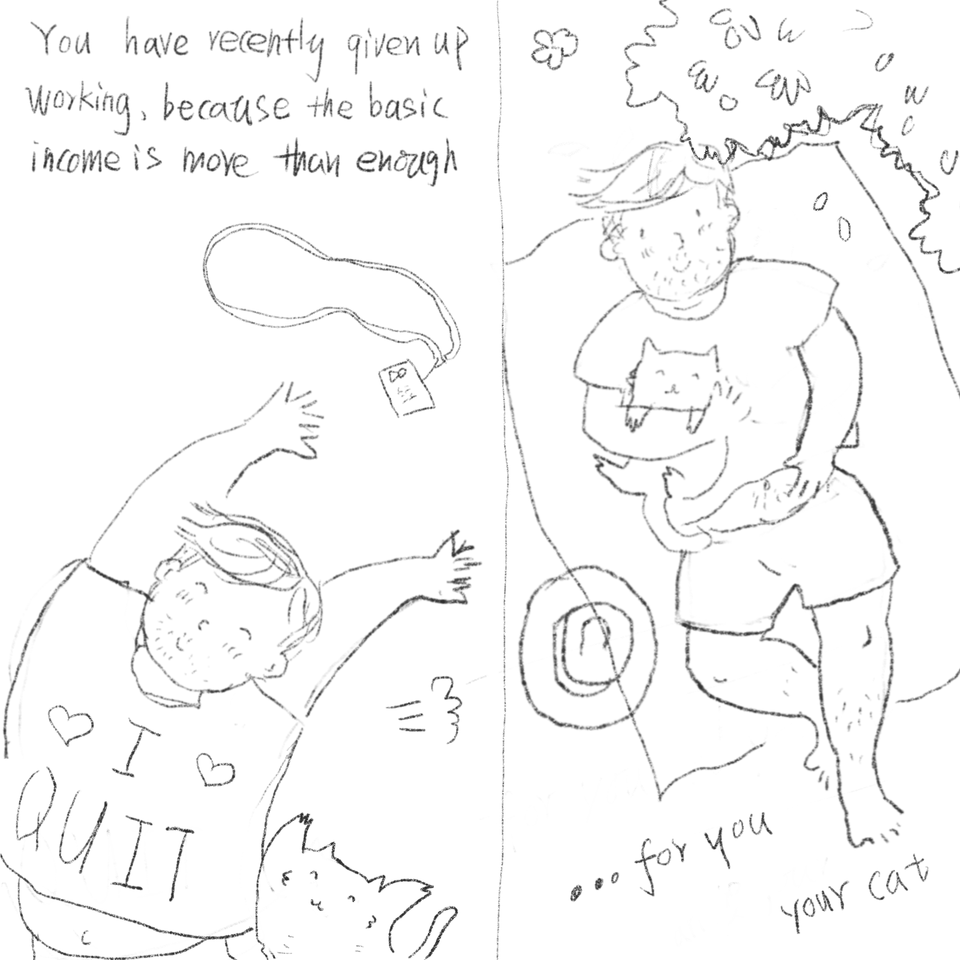 You have recently given up
working, because the basic
income is more than enough
I
QUIT
... for you
your cat